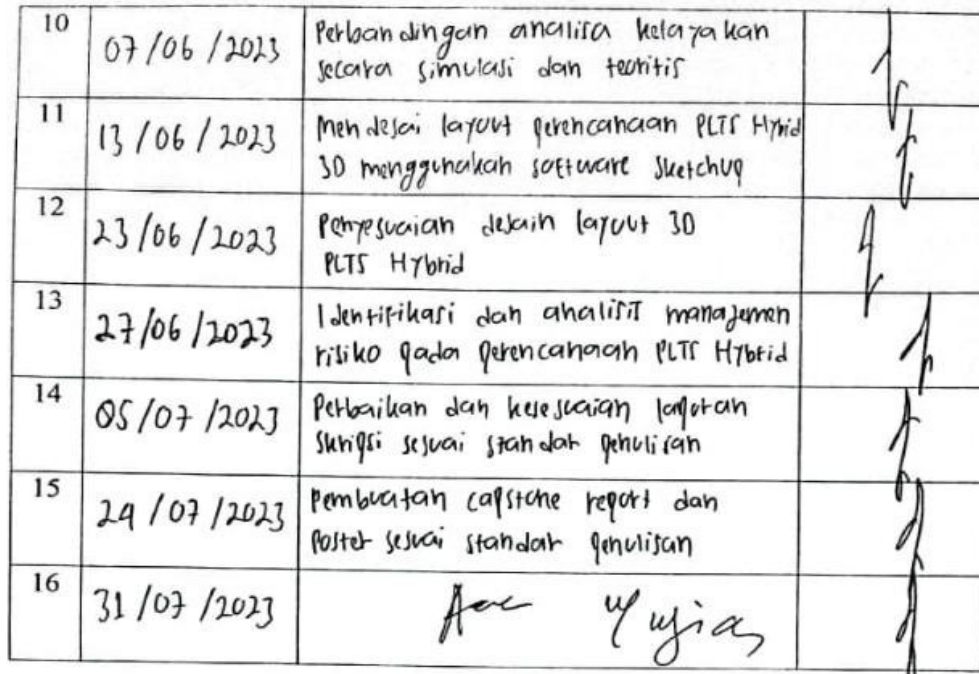 10 07/06/2023 Perbandingan analisa kelayakan
secara simulasi dan teoritis
11 13/06/2023 Mendesai layout perencanaan PLTS Hybrid
3D menggunakan software Sketchup
12 23/06/2023 Penyesuaian desain layout 3D
PLTS Hybrid
13 27/06/2023 Identifikasi dan analisis manajemen
risiko pada perencanaan PLTS Hybrid
14 05/07/2023 Perbaikan dan kesesuaian laporan
skripsi sesuai standar penulisan
15 29/07/2023 Pembuatan capstone report dan
Poster sesuai standar penulisan
16 31/07/2023 Acc Ujian